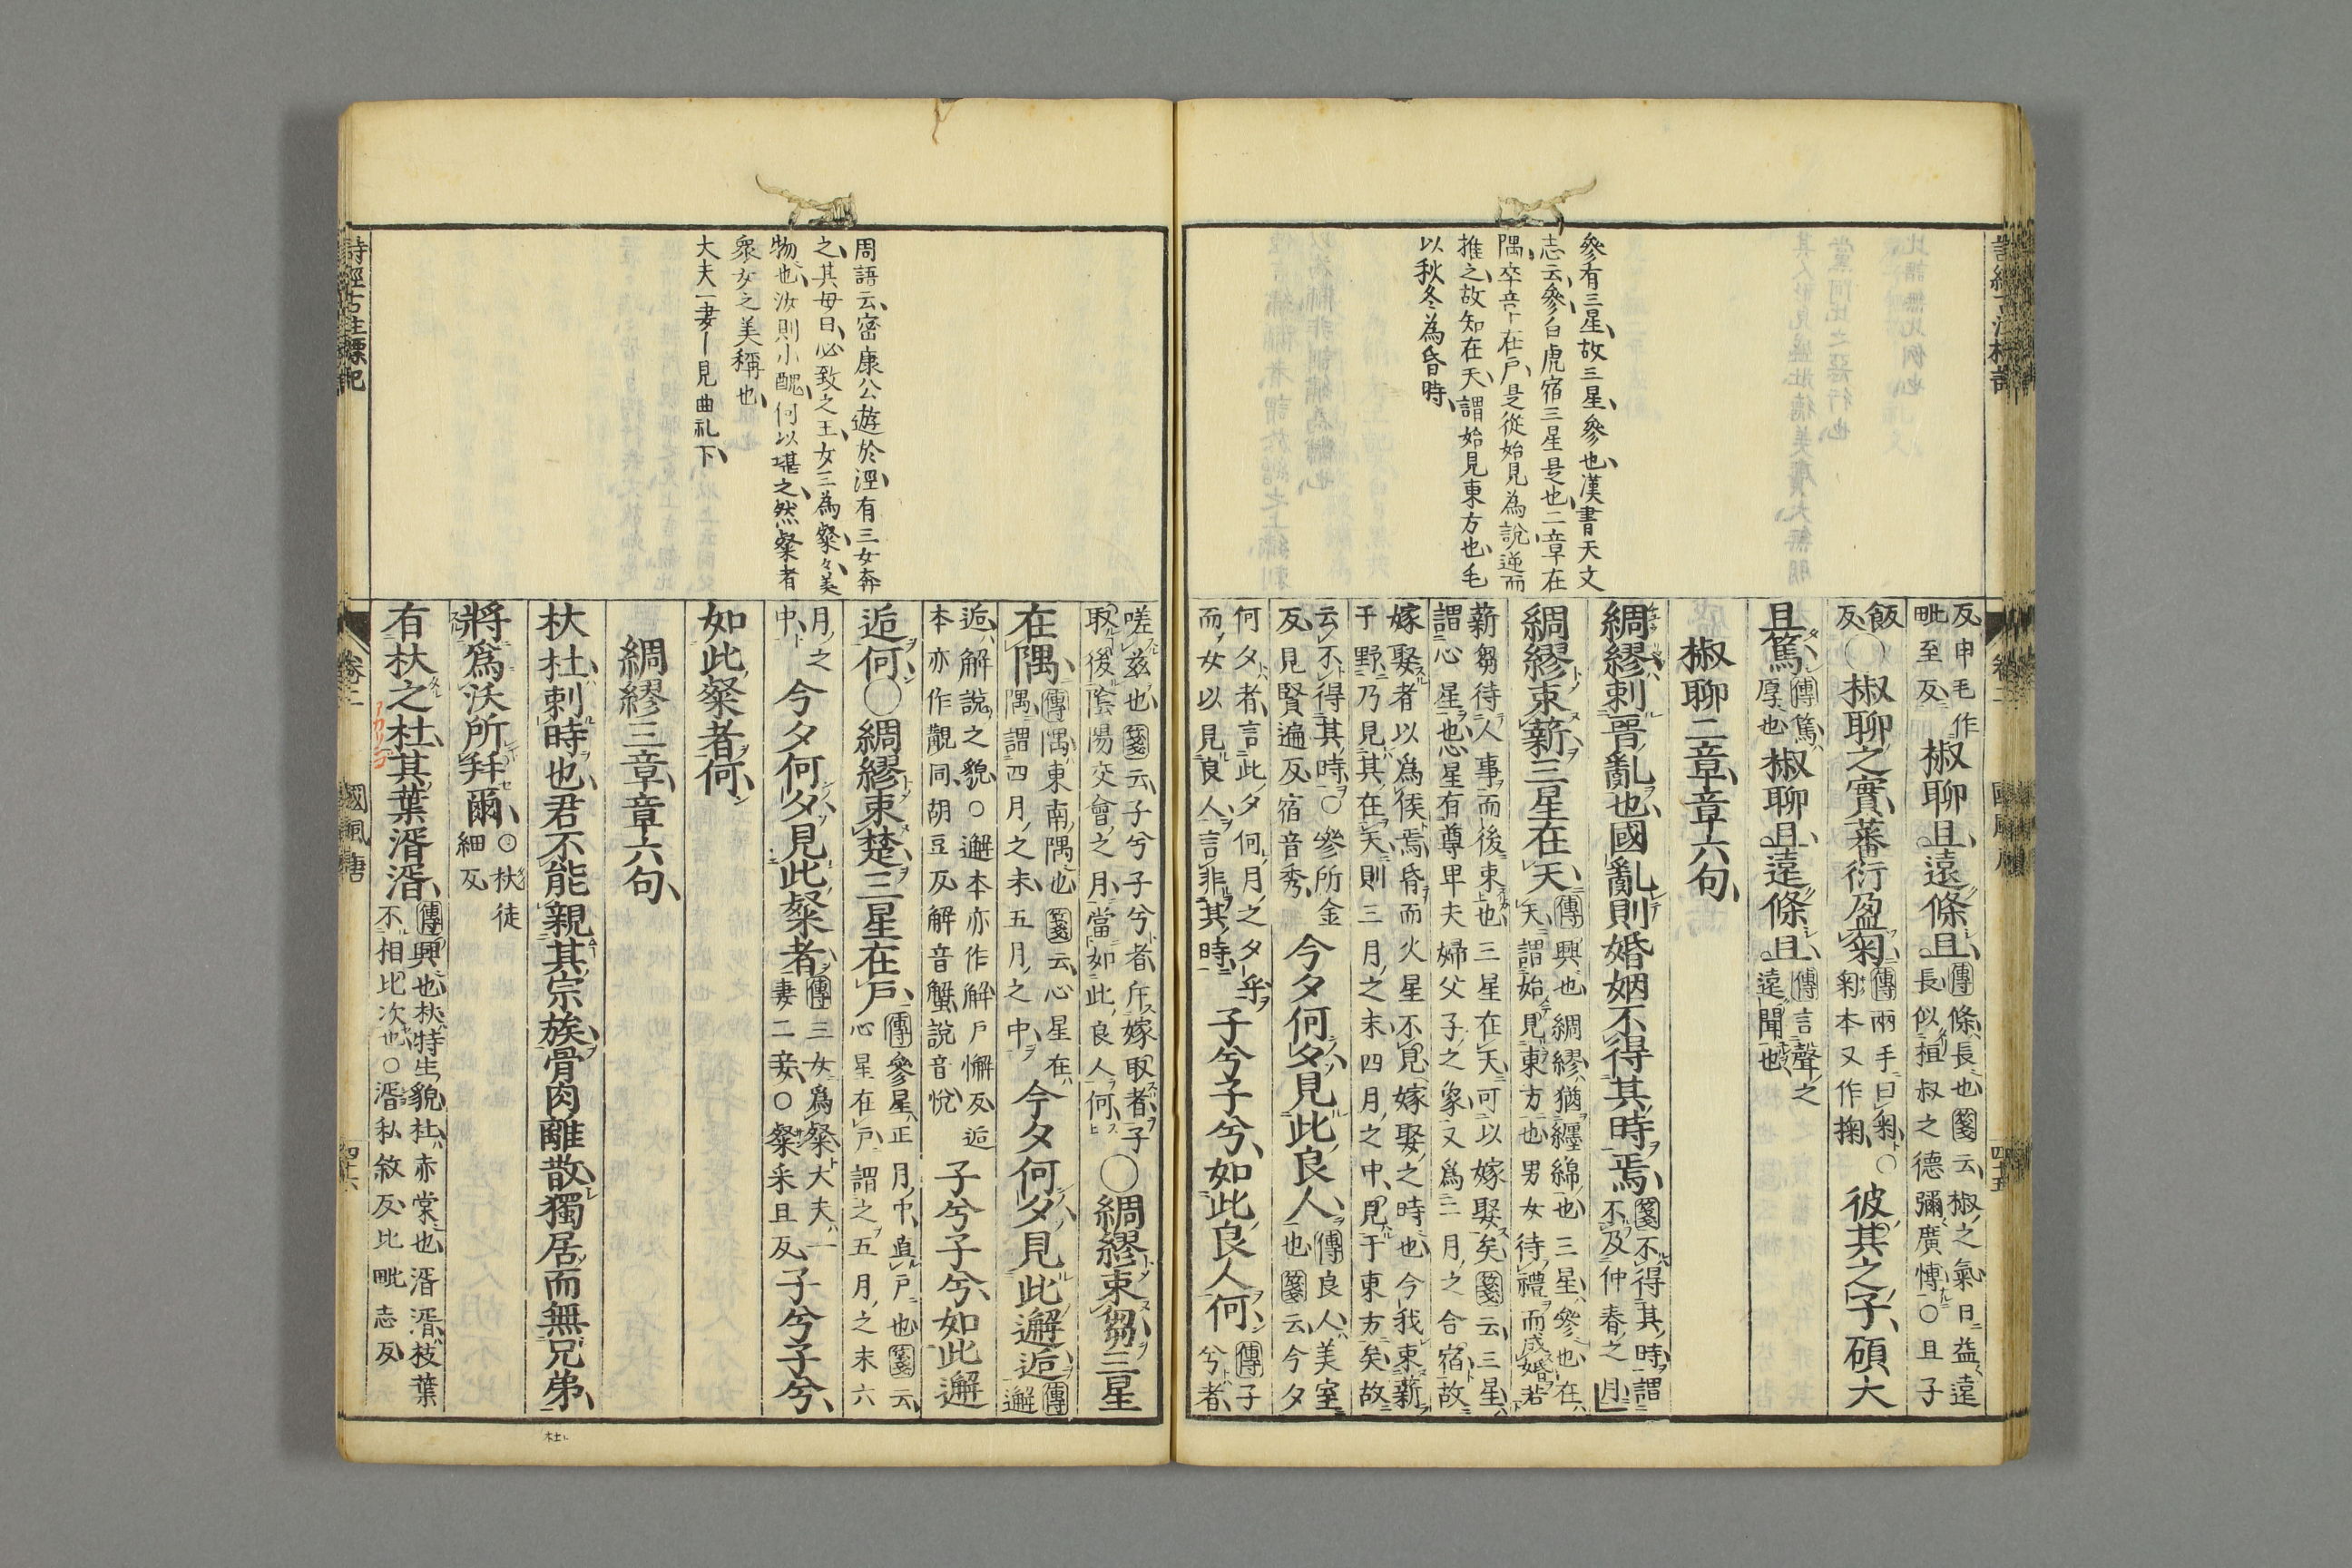 參有三星故三星參也漢書天文
志云參白虎宿三星是也二章在
隅卒章在戸是從始見為説逆而
推之故知在天謂始見東方也毛
以秋冬為昏時
反申毛作
毗至反
椒聊且遠條且
傳條長也箋云椒之氣日益遠
長似桓叔之德彌廣慱○且子
飯
反
○椒聊之實蕃衍盈匊
傳兩手曰匊○
匊本又作掬
彼其之子碩大
且篤
傳篤
厚也
椒聊且遠條且
傳言聲之
遠聞也
椒聊二章章六句
綢繆刺晋亂也國亂則婚姻不得其時焉
箋不得其時謂
不及仲春之月
綢繆束薪三星在天
傳興也綢繆猶纏綿也三星參也在
天謂始見東方也男女待禮而成婚若
薪芻待人事而後束也三星在天可以嫁娶矣箋云三星
謂心星也心星有尊卑夫婦父子之象又爲二月之合宿故
嫁娶者以爲候焉昏而火星不見嫁娶之時也今我束薪
于野乃見其在天則三月之末四月之中見于東方矣故
云不得其時○參所金
反見賢遍反宿音秀
今夕何夕見此良人
傳良人美室
也箋云今夕
何夕者言此夕何月之夕乎
而女以見良人言非其時
子兮子兮如此良人何
傳子
兮者
周語云密康公遊於涇有三女奔
之其母曰必致之王女三為粲々美
物也汝則小醜何以堪之然粲者
衆女之美稱也
大夫一妻ー見曲礼下
嗟茲也箋云子兮子兮者斥嫁取者子
取後陰陽交會之月當如此良人何
○綢繆束芻三星
在隅
傳隅東南隅也箋云心星在
隅謂四月之末五月之中
今夕何夕見此邂逅
傳
邂
逅解説之貌○邂本亦作解戸懈反逅
本亦作覯同胡豆反解音蟹説音悦
子兮子兮如此邂
逅何○綢繆束楚三星在戸
傳參星正月中直戸也箋云
心星在戸謂之五月之末六
月之
中
今夕何夕見此粲者
傳三女爲粲大夫一
妻二妾○粲采且反
子兮子兮
如此粲者何
綢繆三章章六句
杕杜刺時也君不能親其宗族骨肉離散獨居而無兄弟
將爲沃所幷爾
○杕徒
細反
有杕之杜其葉湑湑
傳興也杕特生貌杜赤棠也湑湑枝葉
不相比次也○湑私敘反比毗志反
詩經古注標記
卷二
國風唐
四十六
四十五
杜